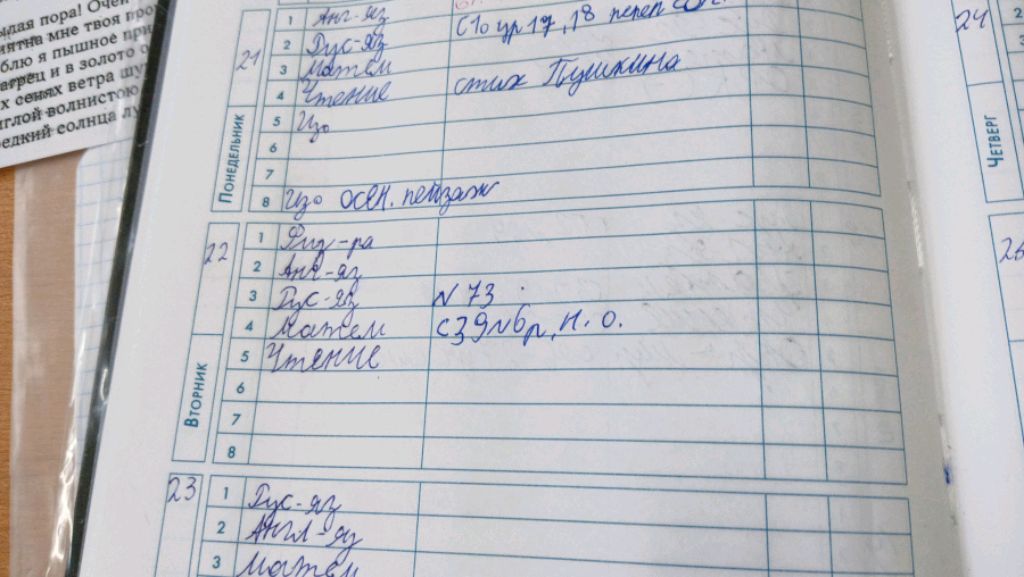 лая пора! Очей
ятна мне твоя про
блю я пышное при
агрец и в золото о
х сенях ветра шу
глой волнистою
едкий солнца лу
21
ПОНЕДЕЛЬНИК
1 Анг-яз
2 Рус-яз
3 Матем
4 Чтение стих Пушкина
5 Изо
6
7
8 Изо осен. пейзаж
22
ВТОРНИК
1 Физ-ра
2 Анг-яз
3 Рус-яз N 73
4 Матем с39N6р, н.о.
5 Чтение
6
7
8
23
1 Рус-яз
2 Англ-яз
3 Матем
24
ЧЕТВЕРГ
2
3